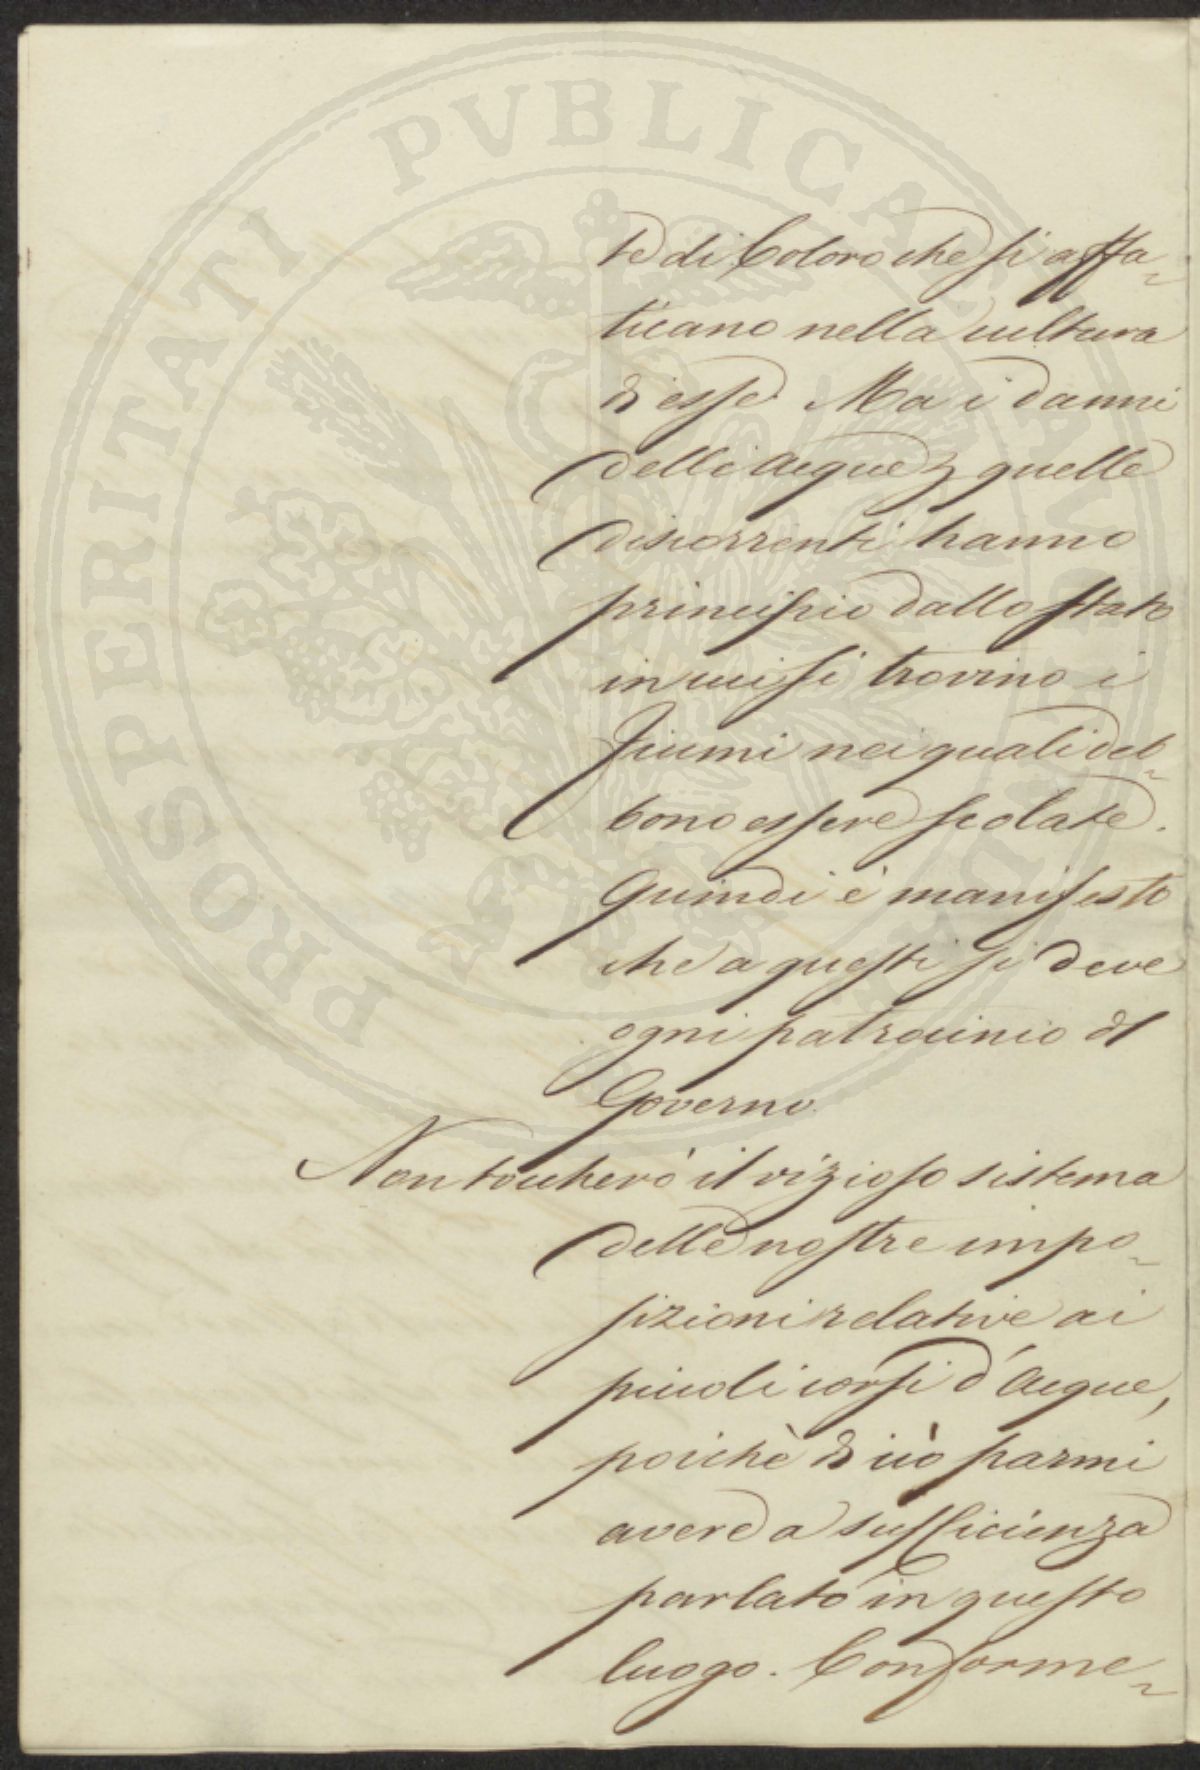 te di Coloro che si affa-
ticano nella cultura
di esse. Ma i danni
delle Acque p quelle
discorrenti hanno
principio dallo stato
in cui si trovino i
fiumi nei quali deb-
bono essere scolate.
Quindi è manifesto
che a questi si deve
ogni patrocinio dl
Governo.
Non toccherò il vizioso sistema
delle nostre impo-
sizioni relative ai
piccoli corsi d'Acque,
poichè di ciò parmi
avere a sufficienza
parlato in questo
luogo. Conforme-
PROSPERITATI PVBLICAE AVGENDAE